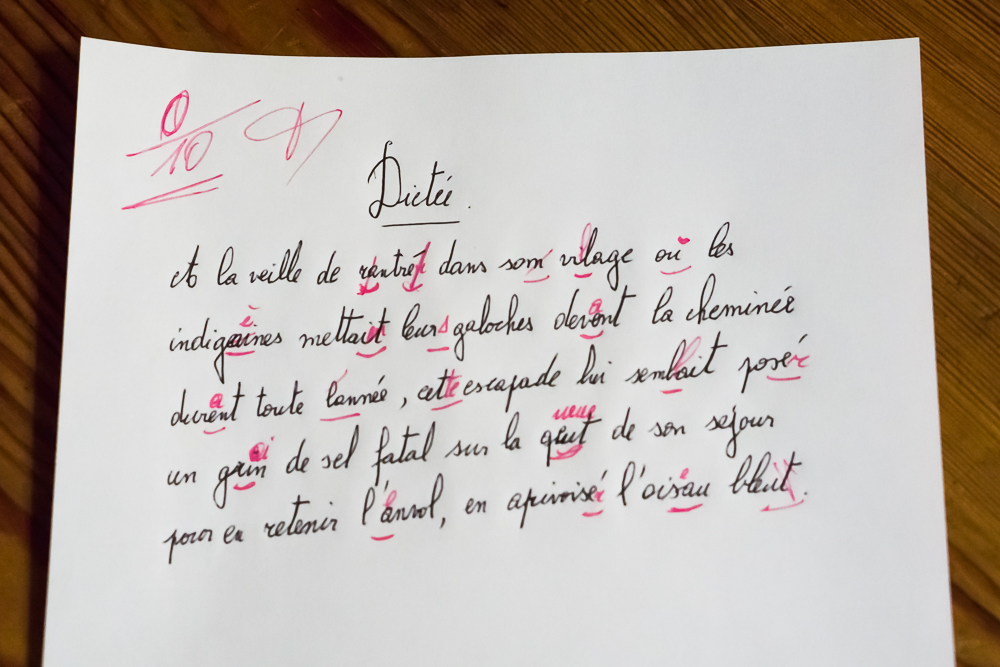 0/10
Dictée.
et la veille de rantrer dans som vilage ou les
indigaines mettait leurs galoches devent la cheminée
durent toute lannée, cette escapade lui semblait posér
un grin de sel fatal sur la qeut de son séjour
pour en retenir l'anvol, en aprivoisé l'oisau bleut.